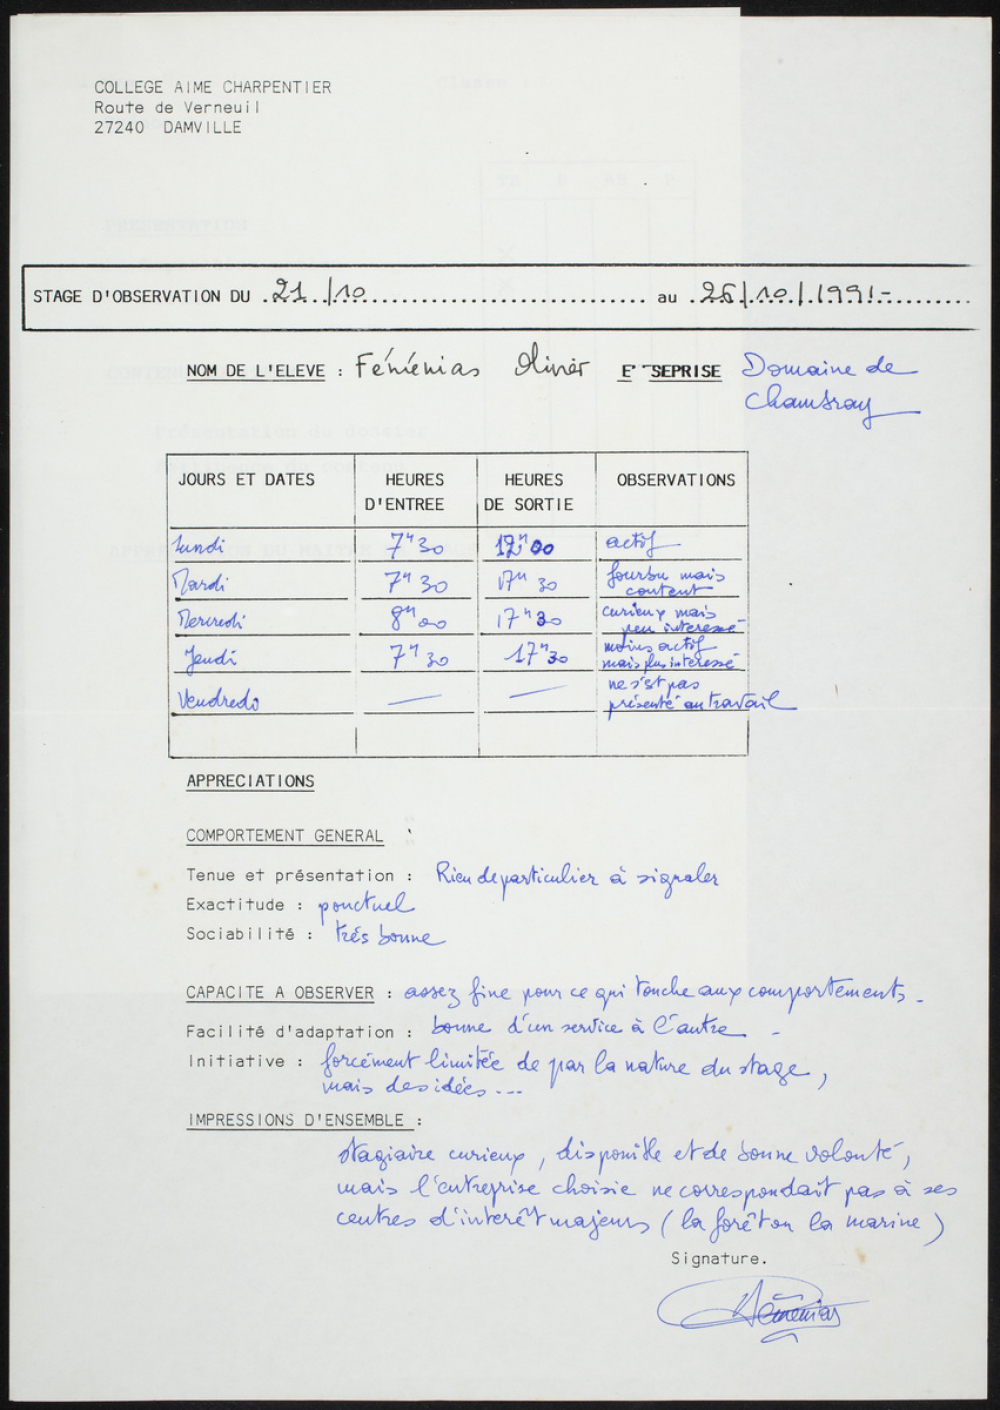 COLLEGE AIME CHARPENTIER
Route de Verneuil
27240 DAMVILLE
STAGE D'OBSERVATION DU 21/10 au 26/10/1991-
NOM DE L'ELEVE : Féménias Olivier E SEPRISE Domaine de
Chambray
JOURS ET DATES HEURES D'ENTREE HEURES DE SORTIE OBSERVATIONS
Lundi 7H30 17H00 actif
Mardi 7H30 17H30 fourbu mais content
Mercredi 8H00 17H30 curieux mais peu interessé
Jeudi 7H30 17H30 moins actif mais plus interessé
Vendredi — — ne s'est pas présenté au travail
APPRECIATIONS
COMPORTEMENT GENERAL
Tenue et présentation : Rien de particulier à signaler
Exactitude : ponctuel
Sociabilité : très bonne
CAPACITE A OBSERVER : assez fine pour ce qui touche aux comportements -
Facilité d'adaptation : bonne d'un service à l'autre -
Initiative : forcément limitée de par la nature du stage,
mais des idées ...
IMPRESSIONS D'ENSEMBLE :
stagiaire curieux, disponible et de bonne volonté,
mais l'entreprise choisie ne correspondait pas à ses
centres d'intérêt majeurs (la forêt ou la marine)
Signature.
Féménias